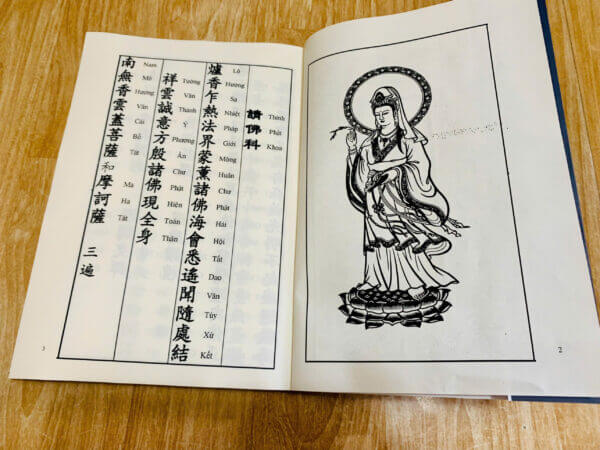 請佛科
Thỉnh Phật Khoa
爐香乍熱法界蒙薰諸佛海會悉遙聞隨處結
Lô Hương Sạ Nhiệt Pháp Giới Mông Huân Chư Phật Hải Hội Tất Dao Văn Tùy Xứ Kết
祥雲誠意方殷諸佛現全身
Tường Vân Thanh Ý Phương Ân Chư Phật Hiện Toàn Thân
南無香雲蓋菩薩和摩訶薩 三遍
Nam Mô Hương Vân Cái Bồ Tát Ma Ha Tát
2
3